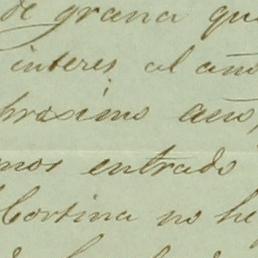 de grana que
interes al año
proximo año,
mos entrado
Cortina no he